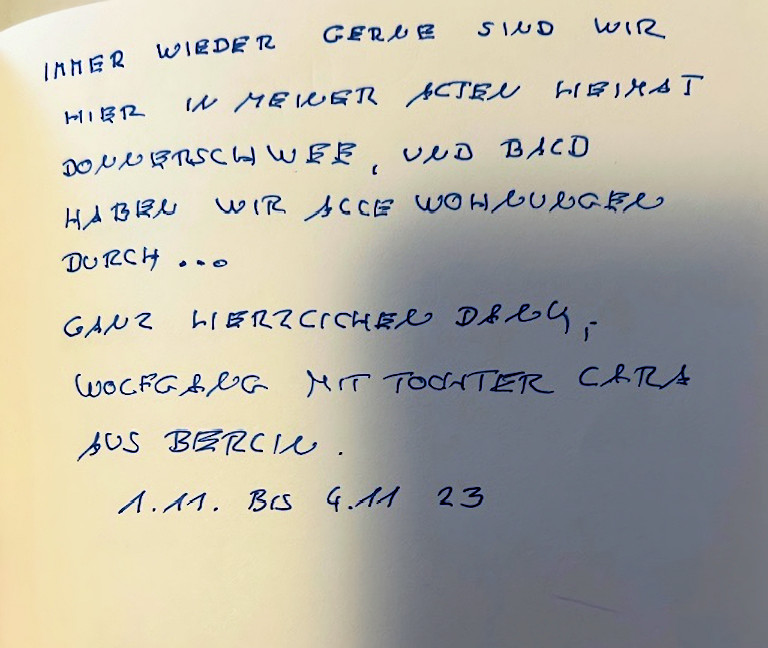 IMMER WIEDER GERNE SIND WIR
HIER IN MEINER ALTEN HEIMAT
DONNERSCHWEE, UND BALD
HABEN WIR ALLE WOHNUNGEN
DURCH...
GANZ HERZLICHEN DANK,
WOLFGANG MIT TOCHTER LARA
AUS BERLIN.
1.11. BIS 4.11 23